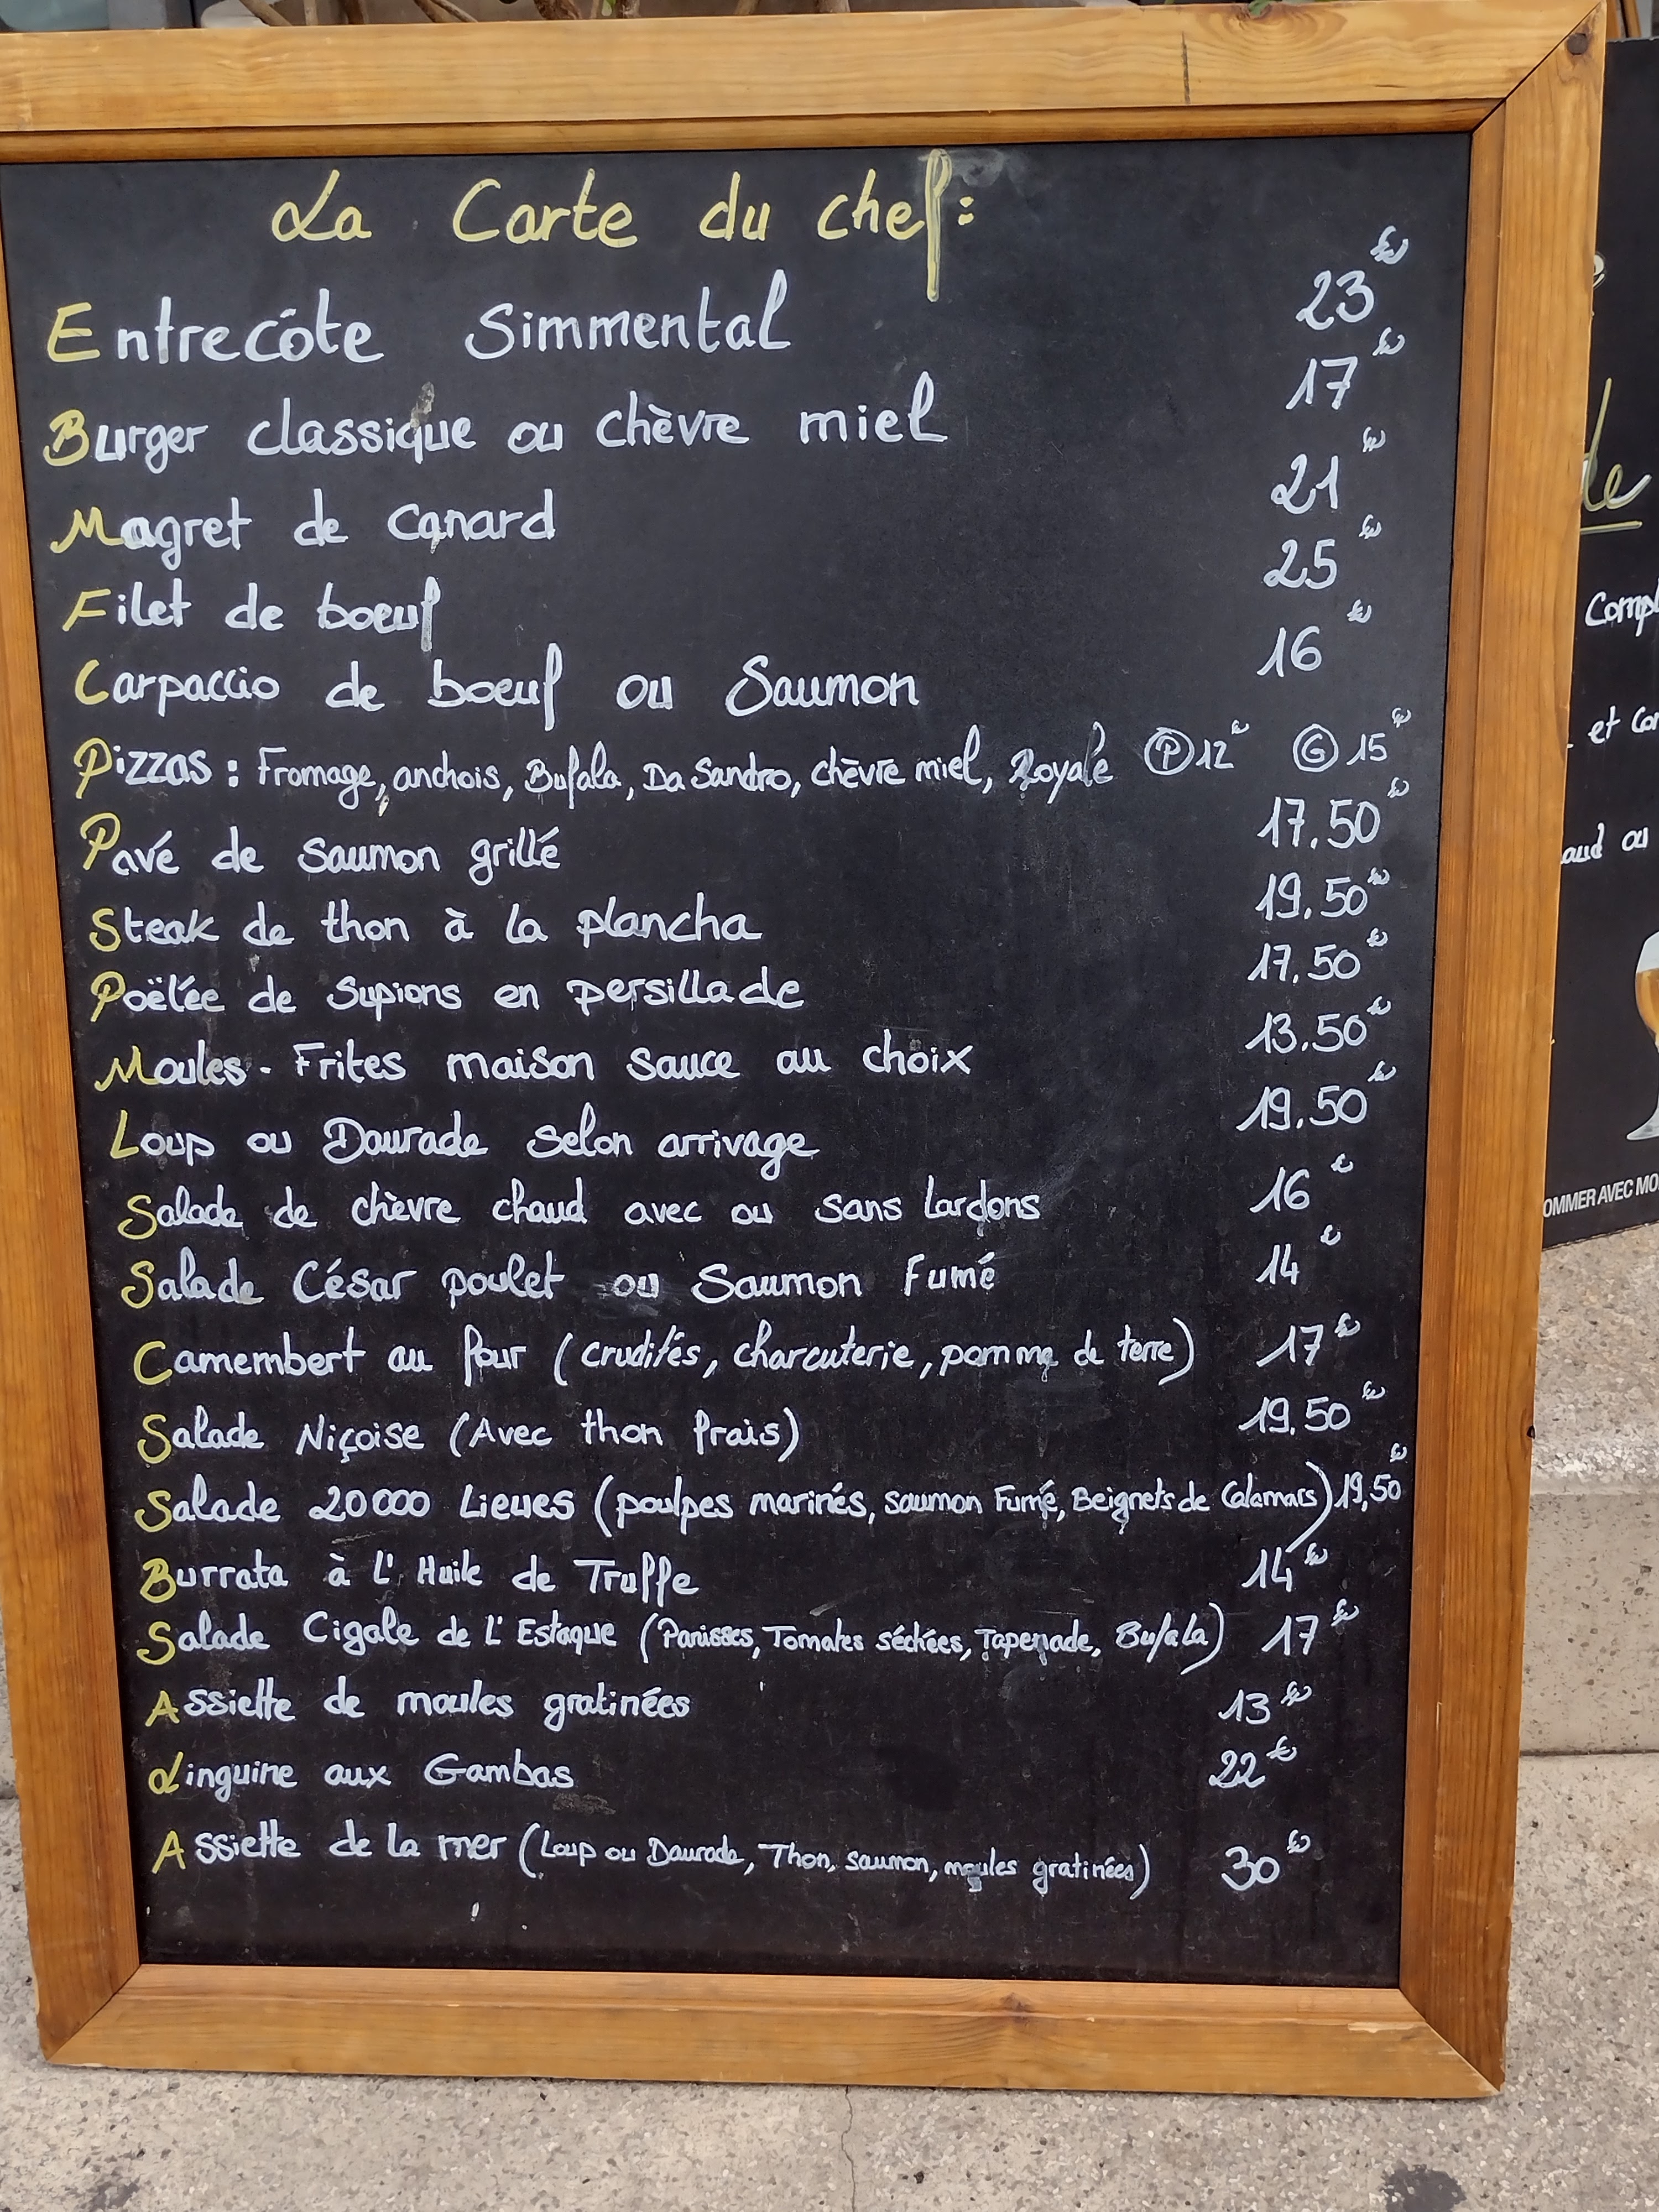 La Carte du chef:
Entrecôte Simmental 23€
Burger classique ou chèvre miel 17€
Magret de canard 21€
Filet de boeuf 25€
Carpaccio de boeuf ou Saumon 16€
Pizzas : Fromage, anchois, Bufala, Da Sandro, chèvre miel, Royale Ⓟ 12€ Ⓖ 15€
Pavé de Saumon grillé 17.50€
Steak de thon à la plancha 19.50€
Poëlée de Supions en persillade 17.50€
Moules-Frites maison sauce au choix 13.50€
Loup ou Daurade selon arrivage 19.50€
Salade de chèvre chaud avec ou sans lardons 16€
Salade César poulet ou Saumon Fumé 14€
Camembert au four (crudités, charcuterie, pomme de terre) 17€
Salade Niçoise (Avec thon frais) 19.50€
Salade 20000 Lieues (poulpes marinés, saumon Fumé, Beignets de Calamars) 19,50€
Burrata à L'Huile de Truffe 14€
Salade Cigale de L'Estaque (Panisses, Tomates séchées, Tapenade, Bufala) 17€
Assiette de moules gratinées 13€
Linguine aux Gambas 22€
Assiette de la mer (Loup ou Daurade, Thon, saumon, moules gratinées) 30€
et
ou
AVEC